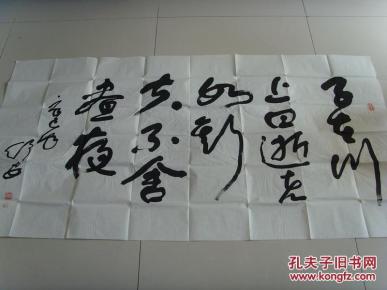 子在川
上曰逝者
如斯
夫不舍
昼夜
孔夫子旧书网